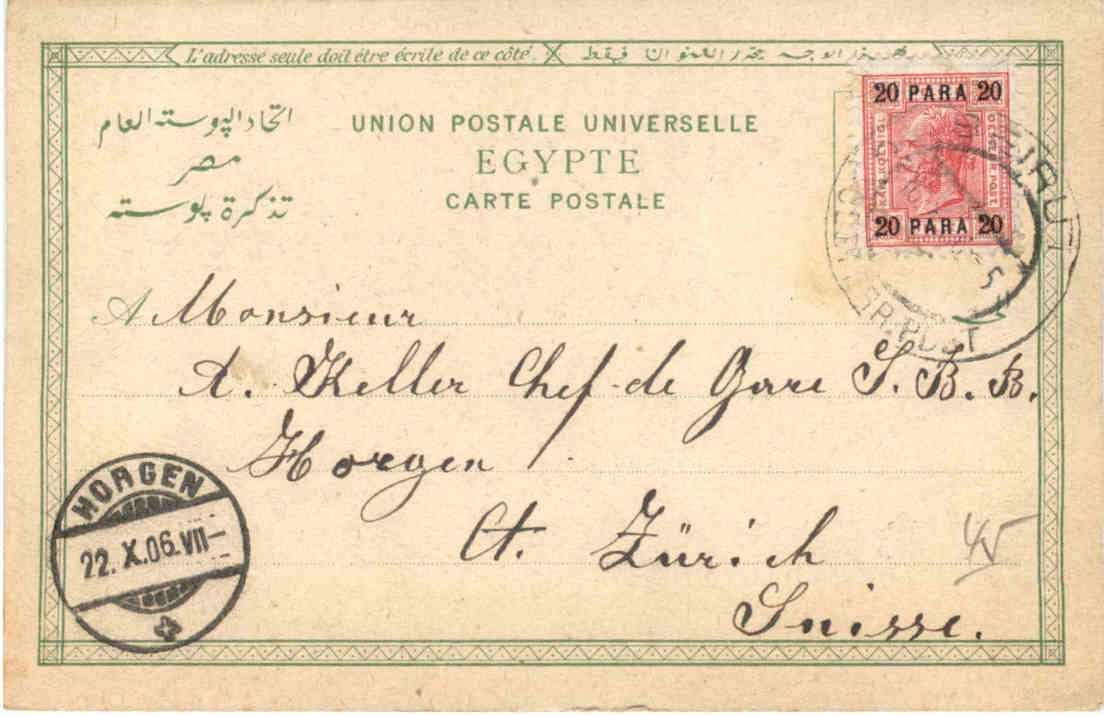 L'adresse seule doit être écrite de ce côté.
فقط
UNION POSTALE UNIVERSELLE
EGYPTE
CARTE POSTALE
اتحاد البوسته العام
مصر
تذكرة بوسته
20 PARA 20
20 PARA 20
BEIRUT
Monsieur
A. Keller Chef-de Gare S. B. B.
Horgen
Ct. Zürich
Suisse.
HORGEN
22. X. 06. VII–